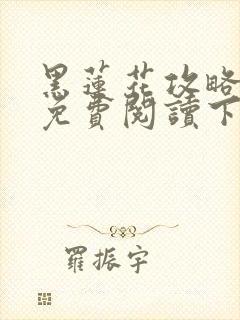 黑蓮花攻略
免費閱讀下
羅振宇